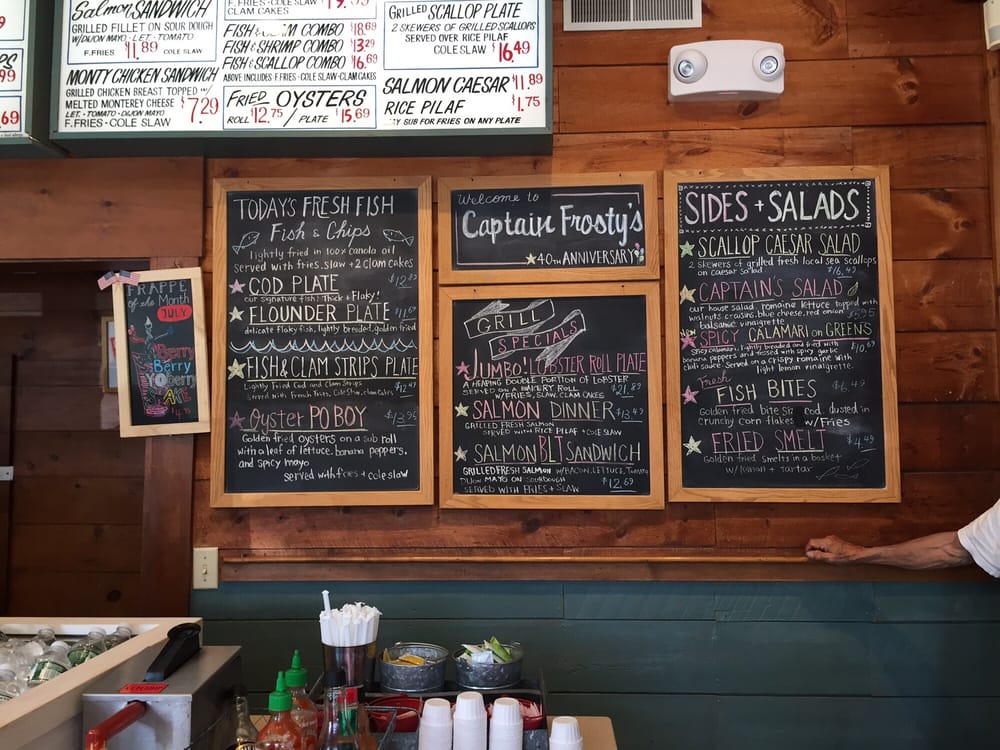 Salmon SANDWICH
GRILLED FILLET ON SOUR DOUGH
W/DIJON MAYO - LET - TOMATO
F. FRIES $11.89 COLE SLAW
MONTY CHICKEN SANDWICH
GRILLED CHICKEN BREAST TOPPED W/
MELTED MONTEREY CHEESE $7.29
LET. - TOMATO - DIJON MAYO
F. FRIES - COLE SLAW
CLAM CAKES
$18.69
FISH & SHRIMP COMBO $13.29
FISH & SCALLOP COMBO $16.69
ABOVE INCLUDES F. FRIES - COLE SLAW - CLAM CAKES
FRIED OYSTERS
ROLL $12.75 / PLATE $15.69
GRILLED SCALLOP PLATE
2 SKEWERS OF GRILLED SCALLOPS
SERVED OVER RICE PILAF
COLE SLAW $16.49
SALMON CAESAR $11.89
RICE PILAF $1.75
SUB FOR FRIES ON ANY PLATE
FRAPPE
of the Month
JULY
Berry
Berry
TODAY'S FRESH FISH
Fish & Chips
lightly fried in 100% canola oil
served with fries, slaw + 2 clam cakes
COD PLATE
our signature fish! Thick + Flaky!
FLOUNDER PLATE $11.69
delicate flaky fish, lightly breaded, golden fried
FISH & CLAM STRIPS PLATE
Lightly Fried Cod and Clam Strips
Served with French Fries, Cole Slaw, Clam Cakes $12.49
Oyster PO BOY $13.95
Golden fried oysters on a sub roll
with a leaf of lettuce, banana peppers,
and spicy mayo
served with fries + cole slaw
Welcome to
Captain Frosty's
40th ANNIVERSARY!
GRILL
SPECIALS
JUMBO! LOBSTER ROLL PLATE
A HEAPING DOUBLE PORTION OF LOBSTER
SERVED ON A BAKERY ROLL $21.89
W/FRIES, SLAW, CLAM CAKES
SALMON DINNER $13.49
GRILLED FRESH SALMON
SERVED WITH RICE PILAF + COLE SLAW
SALMON BLT SANDWICH
GRILLED FRESH SALMON W/BACON, LETTUCE, TOMATO
DIJON MAYO ON SOURDOUGH
SERVED WITH FRIES + SLAW $12.69
SIDES + SALADS
SCALLOP CAESAR SALAD
2 skewers of grilled fresh local sea scallops
on caesar salad $16.49
CAPTAIN'S SALAD
our house salad. romaine lettuce topped with
walnuts, craisins, blue cheese, red onion $5.95
balsamic vinaigrette
NEW SPICY CALAMARI ON GREENS
Spicy calamari, lightly breaded and fried with $10.69
banana peppers and tossed with spicy garlic
chili sauce. Served on a crispy romaine with
light lemon vinaigrette.
Fresh
FISH BITES $6.49
Golden fried bite size cod, dusted in
crunchy corn flakes w/Fries
FRIED SMELT $4.49
Golden fried smelts in a basket
w/lemon + tartar